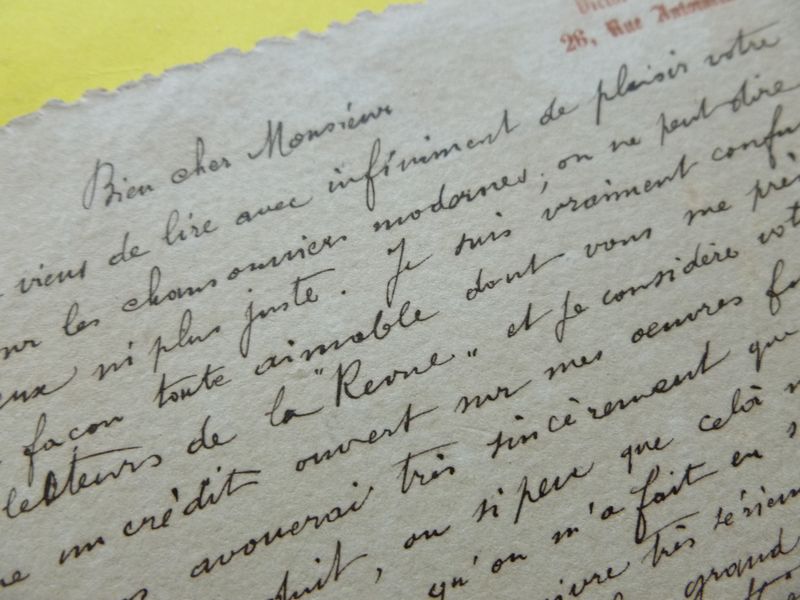 26, Rue
Bien cher Monsieur
viens de lire avec infiniment de plaisir votre
sur les chansonniers modernes, on ne peut dire
ni plus juste. Je suis vraiment
façon toute aimable dont vous me
lecteurs de la "Revue" et je considère
un crédit ouvert sur mes oeuvres
avouerai très sincèrement que
, ou si peu que celà
qu'on m'a fait en
très
grand